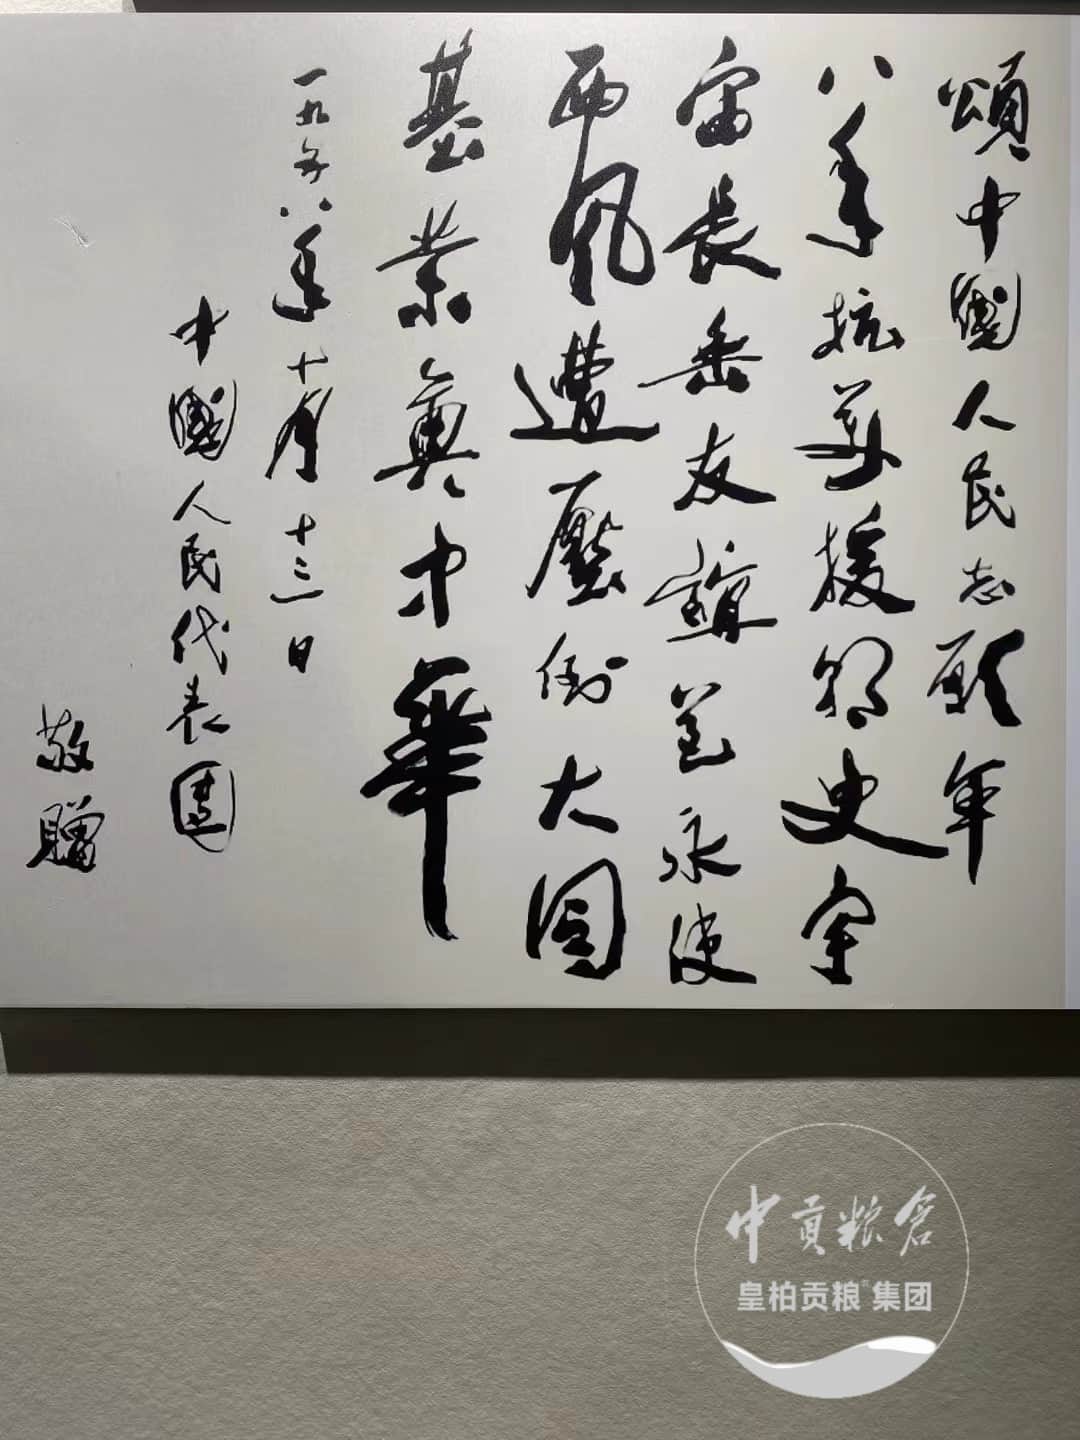 頌中國人民志願年
八年抗美援朝史宇
宙長垂友誼花永使
西風遭壓倒大同
基業奠中華
一九五八年十月十三日
中國人民代表團
敬贈
中貢粮倉
皇柏贡粮集团